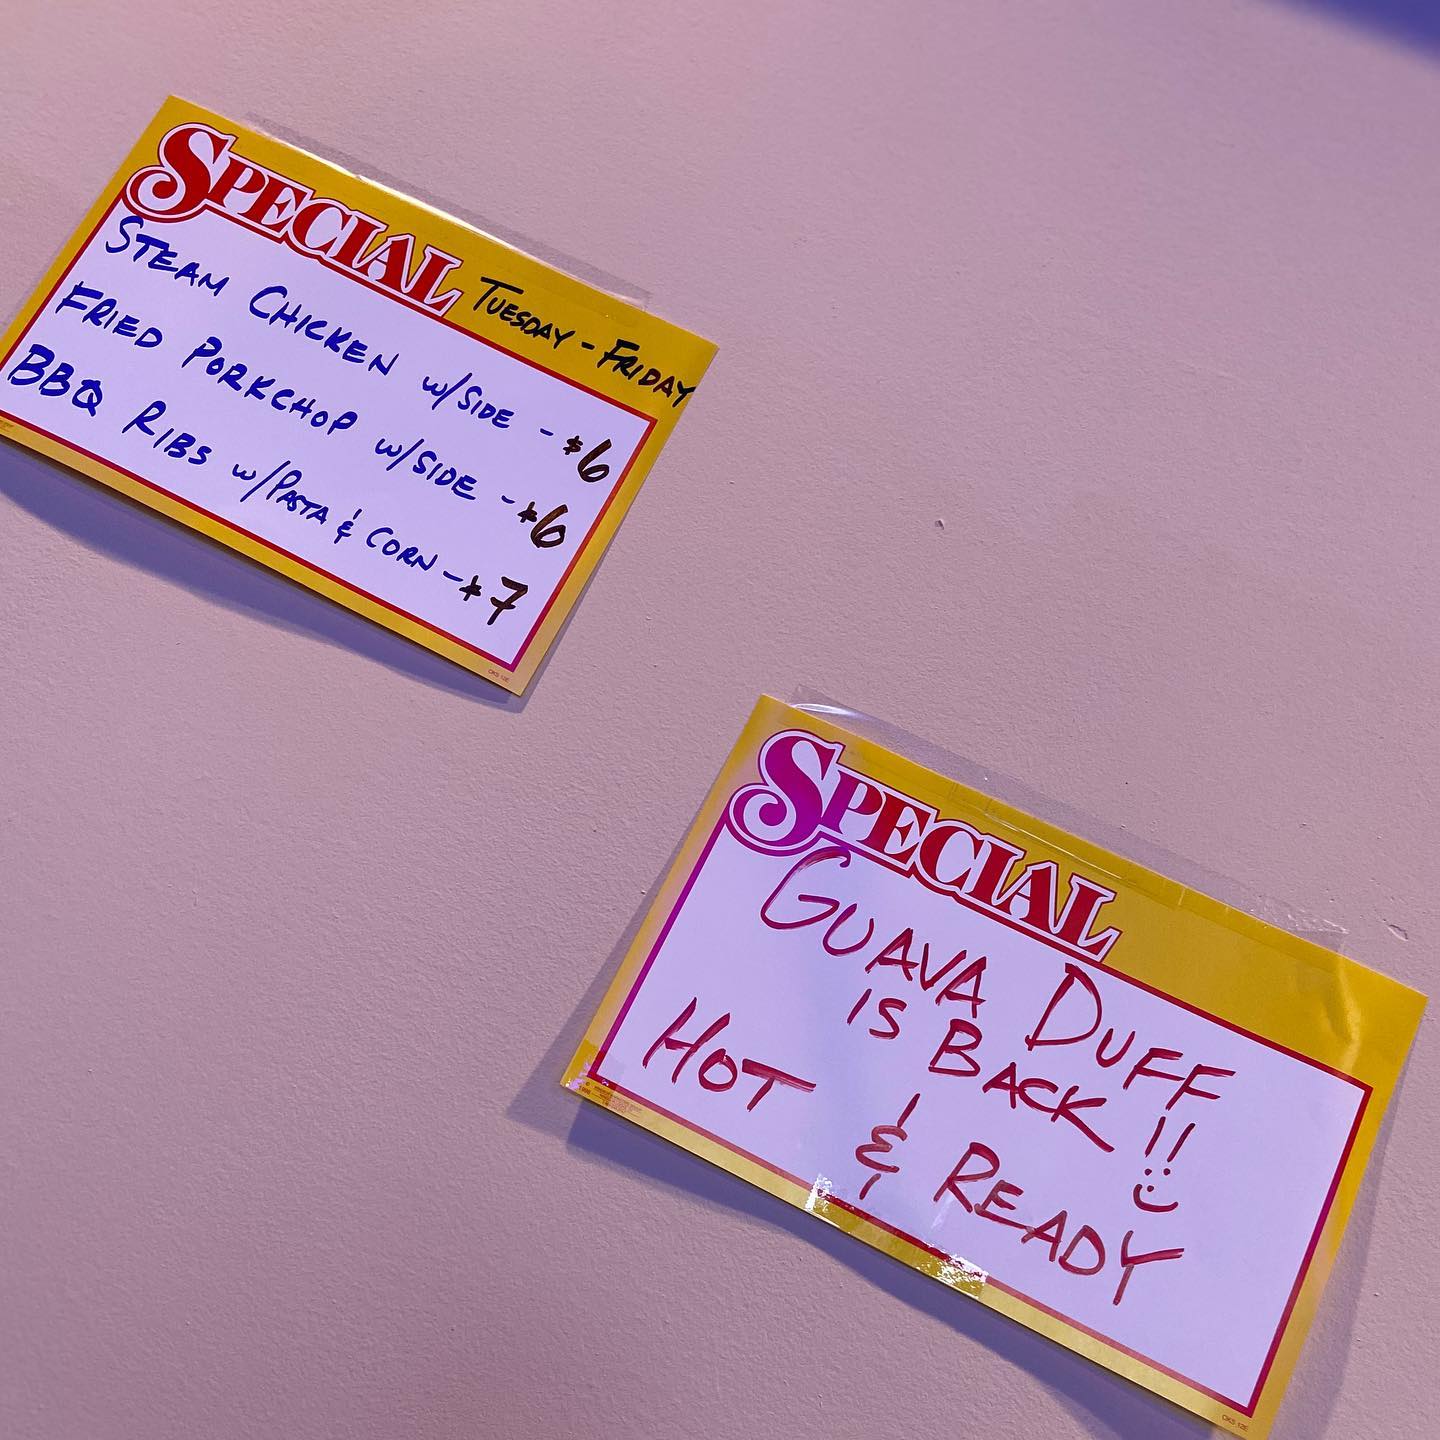 SPECIAL TUESDAY - FRIDAY
STEAM CHICKEN w/SIDE - $6
FRIED PORKCHOP w/SIDE - $6
BBQ RIBS w/PASTA & CORN - $7
SPECIAL
GUAVA DUFF
IS BACK!!
HOT & READY